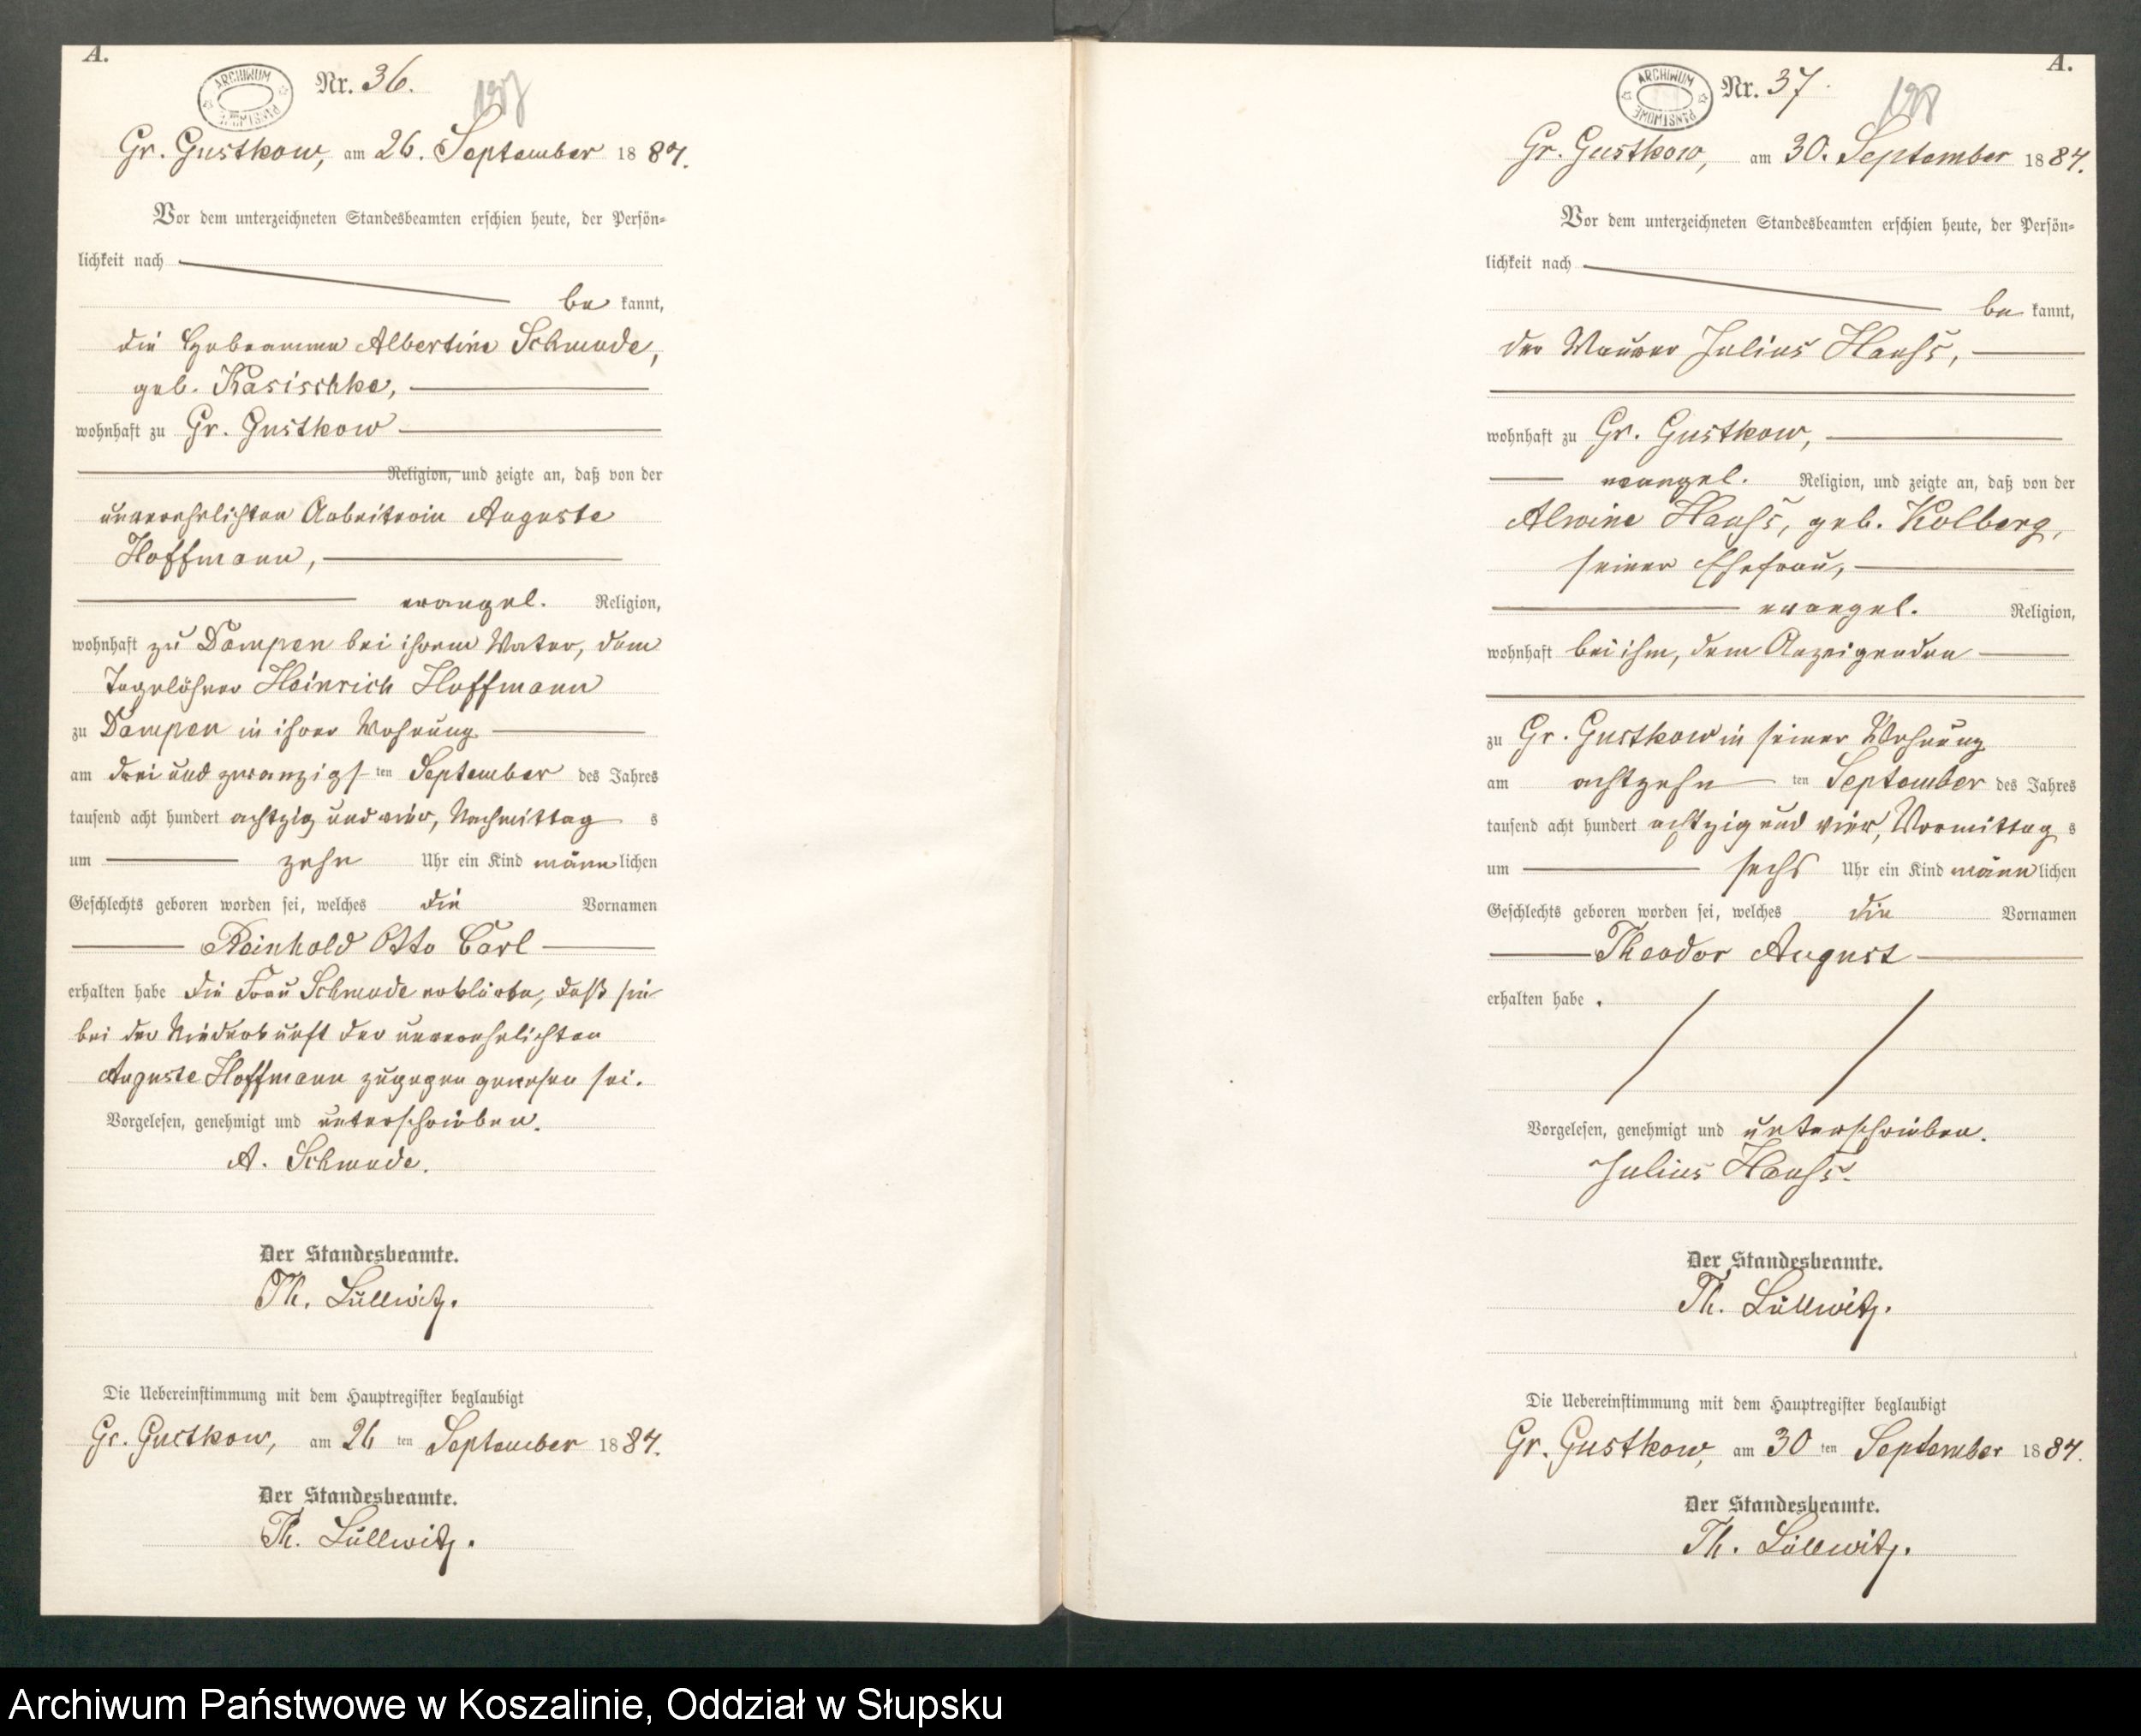 A.
ARCHIWUM PAŃSTWOWE
Nr. 36.
197
Gr. Gustkow, am 26. September 1884.
Vor dem unterzeichneten Standesbeamten erschien heute, der Persön-
lichkeit nach
be kannt,
die Hebeamme Albertine Schmude,
geb. Kasischke,
wohnhaft zu Gr. Gustkow
Religion, und zeigte an, daß von der
unverehelichten Arbeiterin Auguste
Hoffmann,
evangel. Religion,
wohnhaft zu Dampen bei ihrem Vater, dem
Tagelöhner Heinrich Hoffmann
zu Dampen in ihrer Wohnung
am drei und zwanzigs ten September des Jahres
tausend acht hundert achtzig und vier, Nachmittag s
um zehn Uhr ein Kind männ lichen
Geschlechts geboren worden sei, welches die Vornamen
Reinhold Otto Carl
erhalten habe die Frau Schmude erklärte, daß sie
bei der Niederkunft der unverehelichten
Auguste Hoffmann zugegen gewesen sei.
Vorgelesen, genehmigt und unterschrieben.
A. Schmude.
Der Standesbeamte.
Th. Lüllwitz.
Die Uebereinstimmung mit dem Hauptregister beglaubigt
Gr. Gustkow, am 26 ten September 1884.
Der Standesbeamte.
Th. Lüllwitz.
A.
ARCHIWUM PAŃSTWOWE
Nr. 37.
198
Gr. Gustkow, am 30. September 1884.
Vor dem unterzeichneten Standesbeamten erschien heute, der Persön-
lichkeit nach
be kannt,
der Maurer Julius Hauss,
wohnhaft zu Gr. Gustkow,
evangel. Religion, und zeigte an, daß von der
Alwine Hauss, geb. Kolberg,
seiner Ehefrau,
evangel. Religion,
wohnhaft bei ihm, dem Anzeigenden
zu Gr. Gustkow in seiner Wohnung
am achtzehn ten September des Jahres
tausend acht hundert achtzig und vier, Vormittag s
um sechs Uhr ein Kind männ lichen
Geschlechts geboren worden sei, welches die Vornamen
Theodor August
erhalten habe.
Vorgelesen, genehmigt und unterschrieben.
Julius Hauss.
Der Standesbeamte.
Th. Lüllwitz.
Die Uebereinstimmung mit dem Hauptregister beglaubigt
Gr. Gustkow, am 30 ten September 1884.
Der Standesbeamte.
Th. Lüllwitz.
Archiwum Państwowe w Koszalinie, Oddział w Słupsku